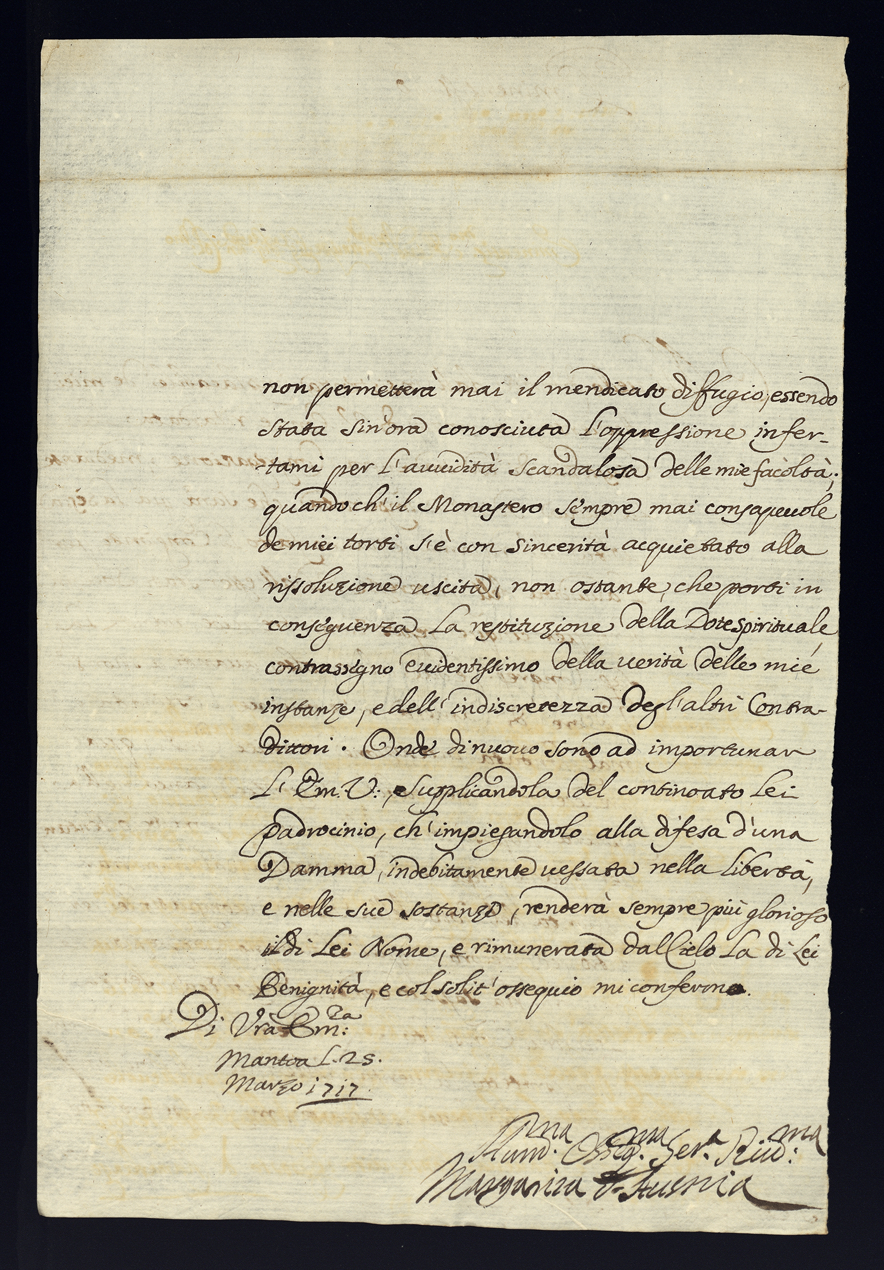 non permetterà mai il mendicato diffugio, essendo
stata sin'ora conosciuta l'oppressione infer-
tami per l'auuidità scandalosa delle mie facoltà;
quando ch'il Monastero sempre mai consapeuole
de miei torti s'è con sincerità acquietato alla
rissoluzione uscita, non ostante, che porti in
conseguenza la restituzione della Dote Spirituale
contrassegno euidentissimo della uerità delle mie
instanze, e dell'indiscretezza degl'altri Contra-
dittori. Onde di nuouo sono ad importunar
L'Em. V:, supplicandola del continoato Lei
padrocinio, ch'impiegandolo alla difesa d'una
Damma, indebitamente uessata nella libertà,
e nelle sue sostanze, renderà sempre più glorioso
il di Lei Nome, e rimunerata dal Cielo la di Lei
Benignità, e col solit'ossequio mi confermo.
Di Vra Em:za
Mantoa L. 25.
Marzo 1717.
Hum.ma Oblig.ma Ser.a Riud:ma
Margarita d'